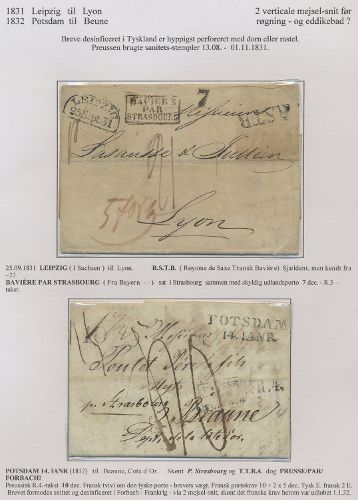 1831 Leipzig til Lyon
1832 Potsdam til Beune
2 verticale mejsel-snit før
røgning - og eddikebad ?
Breve desinficeret i Tyskland er hyppigst perforeret med dorn eller rastel.
Preussen brugte sanitets-stempler 13.08. - 01.11.1831.
LEIPZIG
25 Sept. 31
BAVIERE
PAR
STRASBOURG
7
Messieurs
Lyon
25.09.1831 LEIPZIG ( i Sachsen ) til Lyon. R.S.T.B. ( Royome de Saxe Transit Bavière) Sjældent, men kendt fra
-22.
BAVIÈRE PAR STRASBOURG ( Fra Bayern - - ) sat i Strasbourg sammen med skyldig udlandsporto 7 dec. - R.3 -
takst.
POTSDAM
14. IANR.
Messieurs
p. Strasbourg
Beaune
POTSDAM 14. IANR (1832) til Beaune, Cote d'Or. Skent P. Strasbourg og T.T.R.4. dog PRUSSE/PAR/
FORBACH!
Preussisk R.4.-takst 10 dec. Fransk tvivl om den tyske porto - brevets vægt. Fransk portokrav 10 + 2 x 5 dec. Tysk E. fransk 2 E.
Brevet formodes snittet og desinficeret i Forbach - Frankrig - via 2 mejsel-snit, da det franske krav herom var udløbet i 1.132.